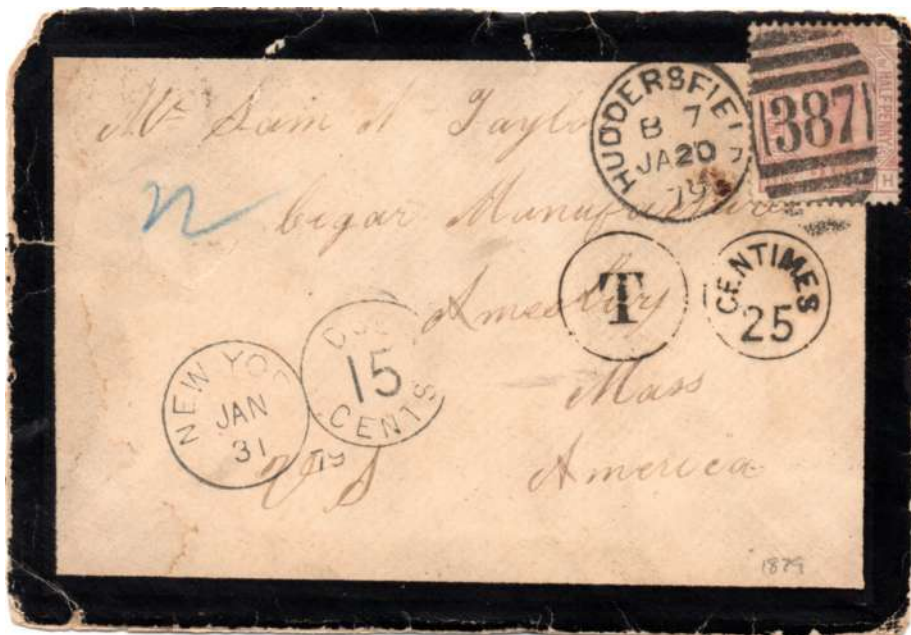 Mr Sam N Taylor
Cegar Manufacturer
Amesbury
Mass
U S America
HUDDERSFIEL
B 7
JA 20
79
387
HALFPENNY
H
T
CENTIMES
25
DUE
15
CENTS
NEW YO
JAN
31
79
1879